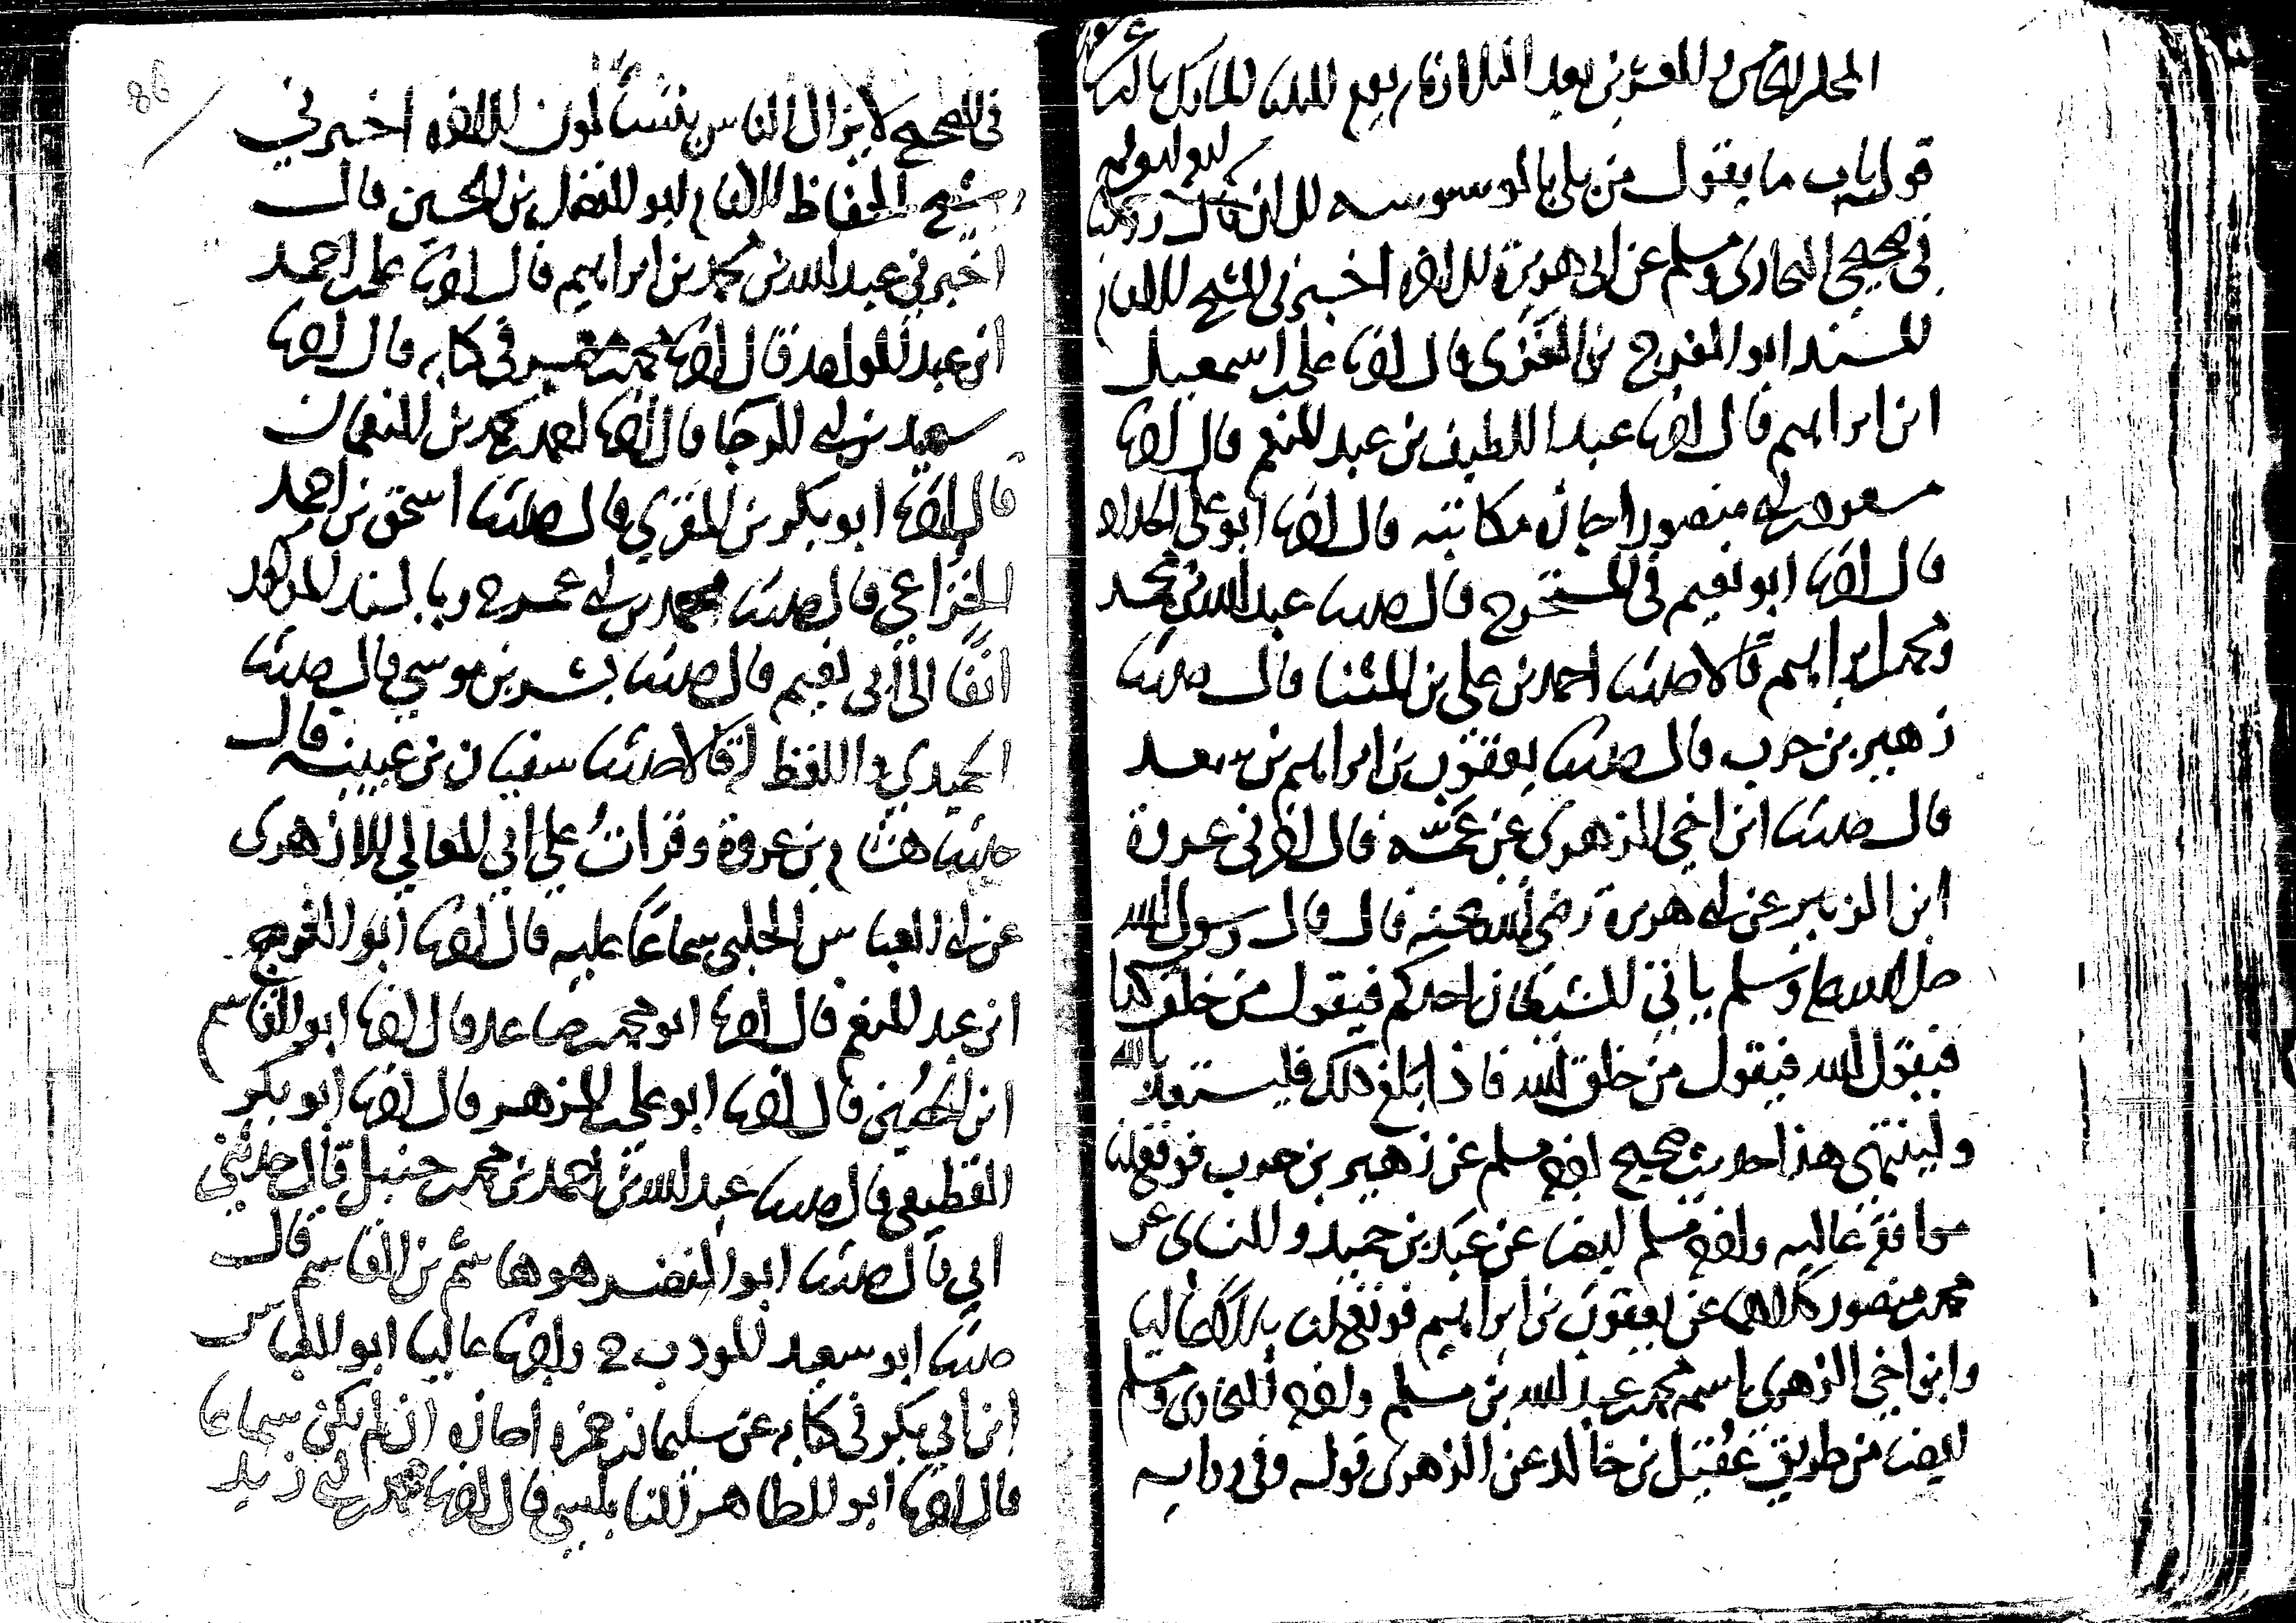 المجلس الخامس والعشرين بعد الثلاثمائة يوم الثلاثاء
قوله باب ما يقول من بلي بالوسوسة الى ان قال روينا
في صحيحي البخاري ومسلم عن ابي هريرة الى اخره اخبرني الشيخ الامام
المسند ابو الفرج بن الغزي قال اخبرنا علي بن اسمعيل
ابن ابراهيم قال اخبرنا عبد اللطيف بن عبد المنعم قال اخبرنا
مسعود بن ابي منصور اجازة مكاتبة قال اخبرنا ابو علي الحداد
قال اخبرنا ابو نعيم في المستخرج قال حدثنا عبد الله بن محمد
ومحمد بن ابراهيم قالا حدثنا احمد بن علي بن المثنا قال حدثنا
زهير بن حرب قال حدثنا يعقوب بن ابراهيم بن سعد
قال حدثنا ابن اخي الزهري عن عمه قال اخبرني عروة
ابن الزبير عن ابي هريرة رضي الله عنه قال قال رسول الله
صلى الله عليه وسلم ياتي الشيطان احدكم فيقول من خلق كذا
فيقول الله فيقول من خلق الله فاذا بلغ ذلك فليستعذ بالله
ولينتهي هذا حديث صحيح اخرجه مسلم عن زهير بن حرب فوقع لنا
موافقة عالية واخرجه مسلم ايضا عن عبد بن حميد والنساي عن
محمد بن منصور كلاهما عن يعقوب بن ابراهيم فوقع لنا بدلا عاليا
وابن اخي الزهري اسمه محمد بن عبد الله بن مسلم واخرجه البخاري ومسلم
ايضا من طريق عقيل بن خالد عن الزهري قوله وفي رواية
86
في الصحيح لا يزال الناس يتساءلون الى اخره اخبرني
شيخ الحفاظ الامام ابو الفضل بن الحسين قال
اخبرني عبد الله بن محمد بن ابراهيم قال اخبرنا علي بن احمد
ابن عبد الواحد قال اخبرنا محمد بن معمر في كتابه قال اخبرنا
سعيد بن ابي الرجا قال اخبرنا احمد بن محمد بن النعمان
قال اخبرنا ابو بكر بن المقري قال حدثنا اسحق بن احمد
الخزاعي قال حدثنا محمد بن ابي عمر ح وبالسند المذكور
انفا الى ابي نعيم قال حدثنا بشر بن موسي قال حدثنا
الحميدي واللفظ له قالا حدثنا سفيان بن عيينه قال
حدثنا هشام بن عروة وقرات علي ابي المعالي الازهري
عن ابي العباس الحلبي سماعا عليه قال اخبرنا ابو الفرج
ابن عبد المنعم قال اخبرنا ابو محمد بن صاعد قال اخبرنا ابو القاسم
ابن الحصين قال اخبرنا ابو علي المذهب قال اخبرنا ابو بكر
القطيعي قال حدثنا عبد الله بن احمد بن محمد بن حنبل قال حدثني
ابي قال حدثنا ابو النضر هو هاشم بن القاسم قال
حدثنا ابو سعيد المودب ح واخبرنا عاليا ابو العباس
ابن ابي بكر في كتابه عن سليمان بن حمزه اجازة ان لم يكن سماعا
قال اخبرنا ابو الطاهر النابلسي قال اخبرنا محمد بن ابي زيد